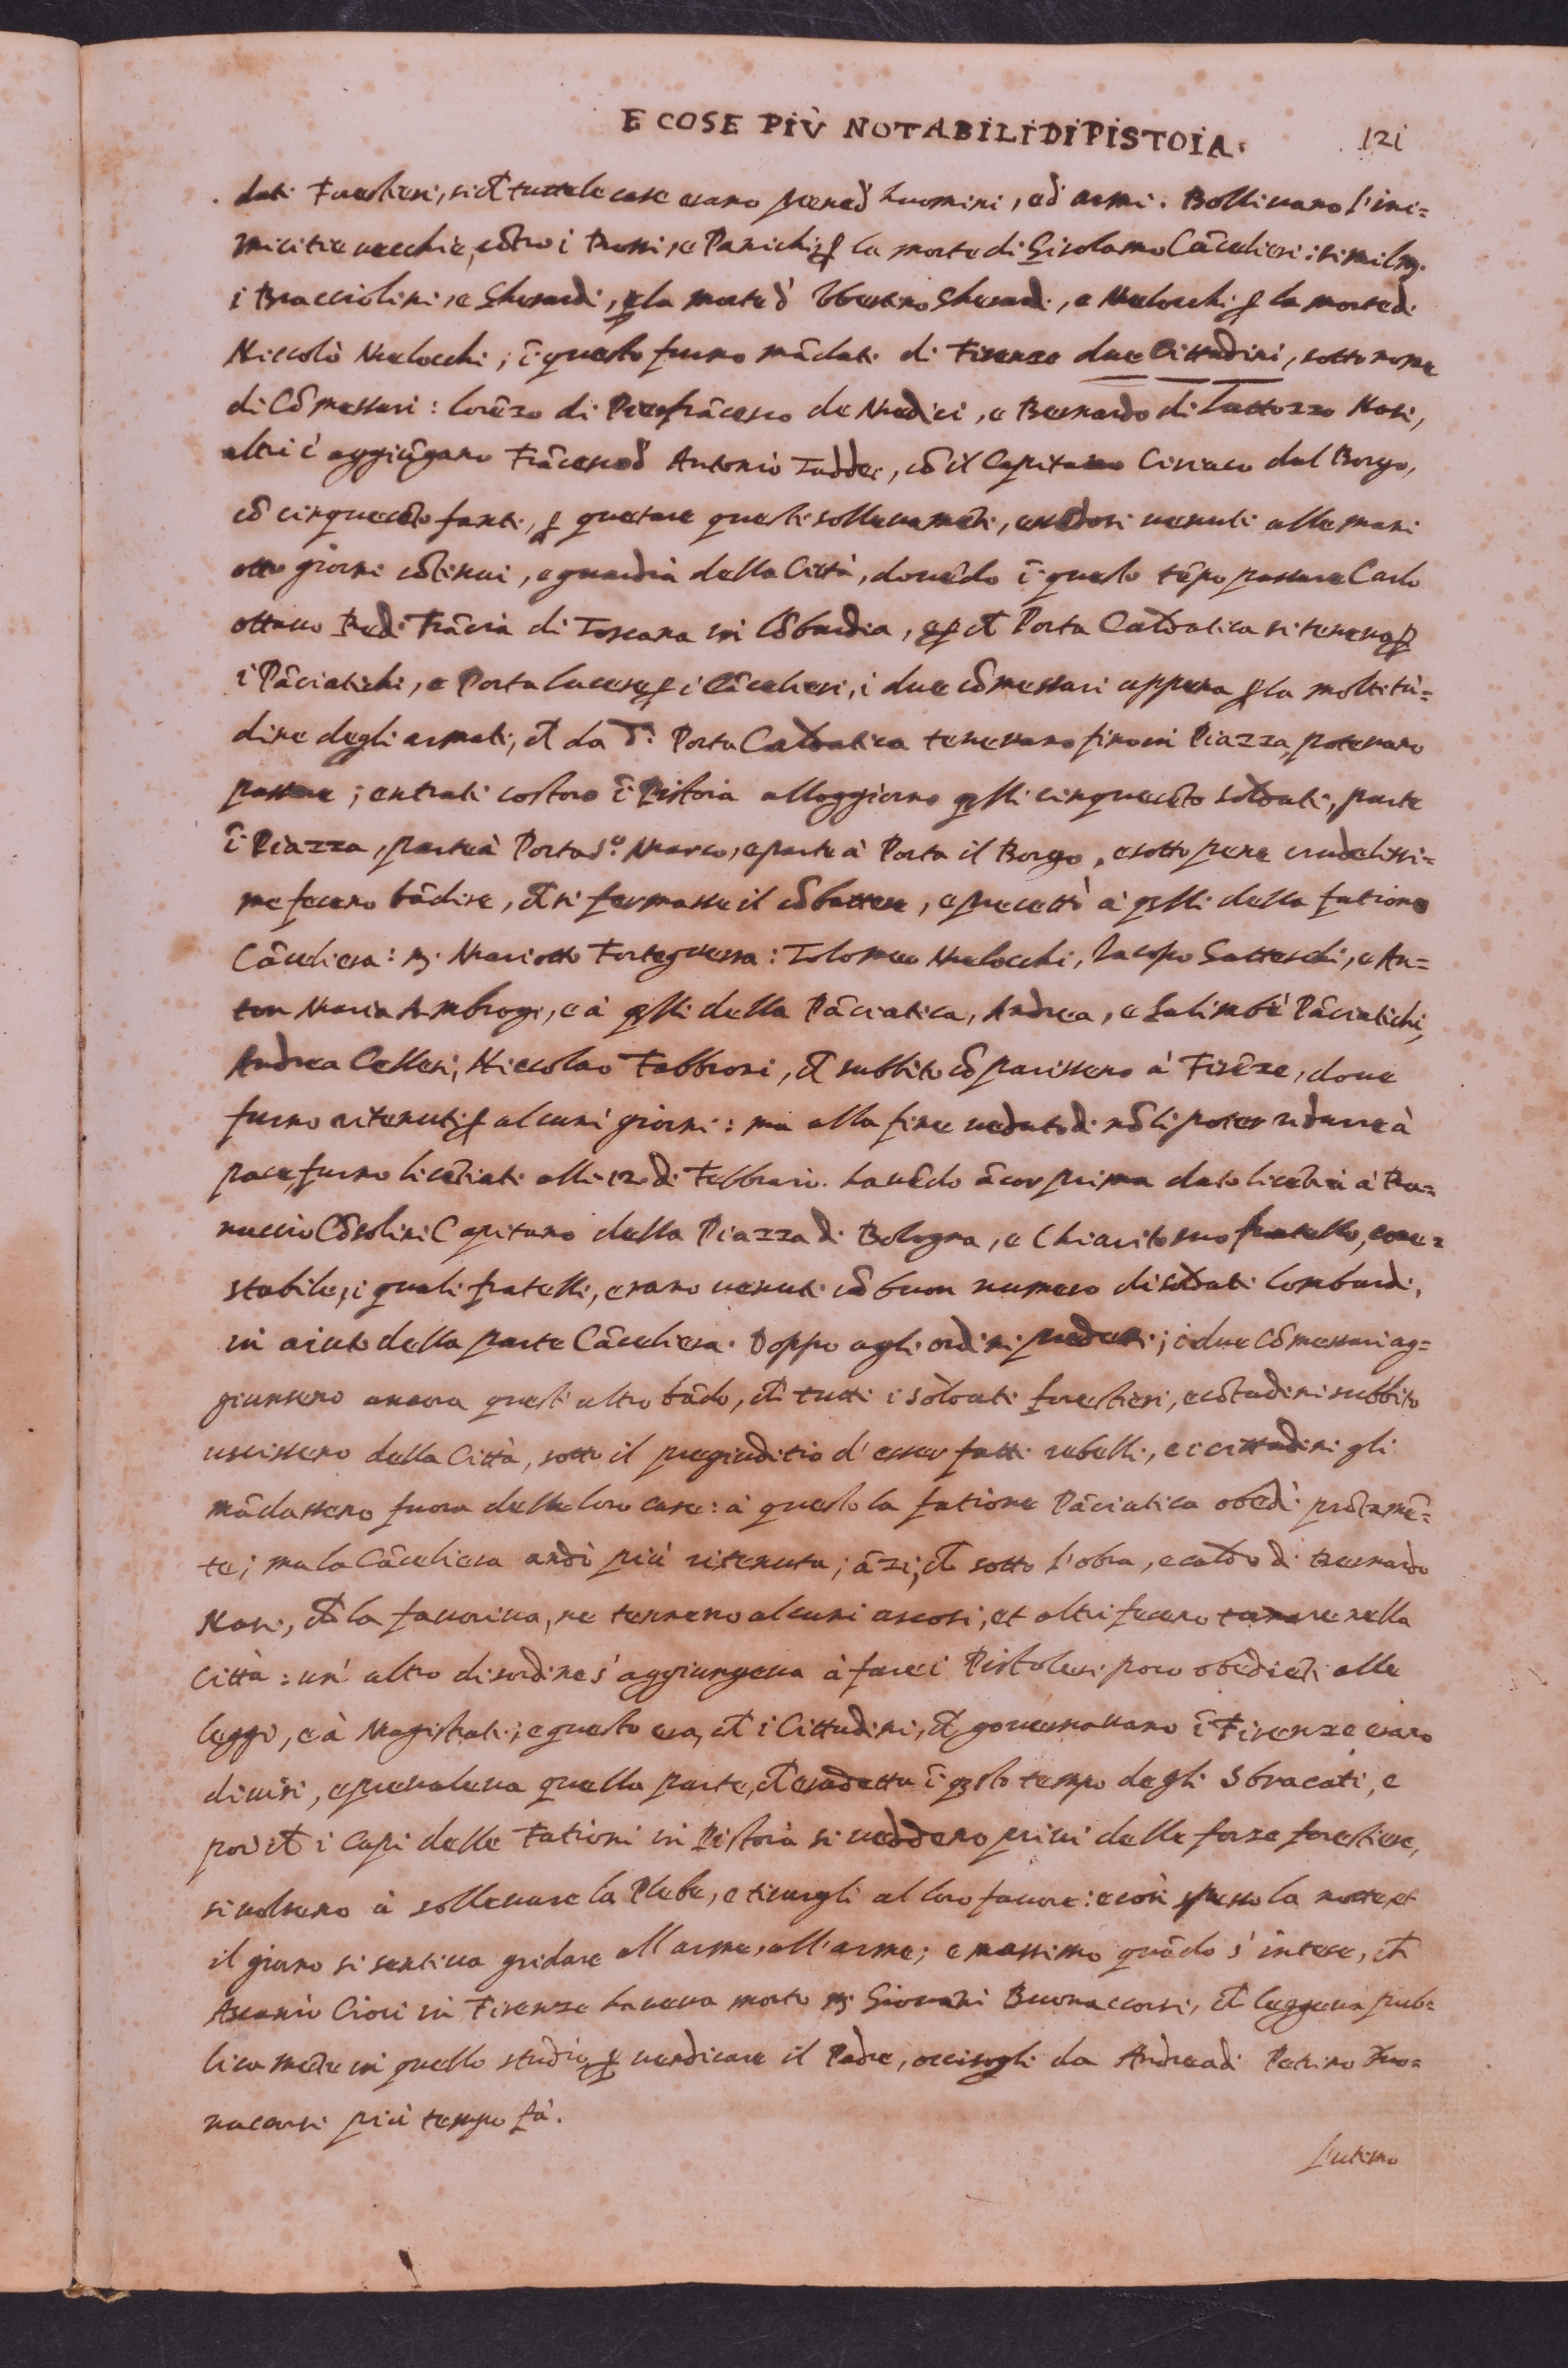 E COSE PIÙ NOTABILI DI PISTOIA. 121
dati Forestieri, si ch̃ tutte le case erano piene d' huomini, ed armi. Bollivano l'ini=
micitie vecchie, cõtro i Rossi, e Panichi, ꝑ la morte di Girolamo Cãcelieri: similm.
i Bracciolini, e Gherardi, ꝑ la morte d' Ubertino Gherardi, e Melocchi ꝑ la morte di
Niccolò Melocchi; ĩ questo furno mãdati di Firenze due Cittadini, sotto nome
di Cõmessari: Lorẽzo di Pierfrãcesco de Medici, e Bernardo di Nasi,
altri c' aggiũgano Frãcesco d' Antonio Taddei, cõ il Capitano Ciriaco dal Borgo,
cõ cinquecẽto fanti, ꝑ quetare questi sollevamẽti, essẽdosi venuti alle mani
otto giorni cõtinui, e guardia della Città, dovẽdo ĩ questo tẽpo passare Carlo
ottavo Re di Frãcia di Toscana in Lõbardia, e ꝑ ch̃ Porta Caldatica si teneva ꝑ
i Pãciatichi, e Porta Lucese ꝑ i Cãcelieri, i due cõmessari appena ꝑ la moltitu=
dine degli armati, ch̃ da d.ª Porta Caldatica tenevano fino in Piazza, potevano
passare; entrati costoro ĩ Pistoia alloggiorno q̃lli cinquecẽto soldati, parte
ĩ Piazza, parte à Porta S.º Marco, e parte à Porta il Borgo, e sotto pene crudelissi=
me fecero bãdire, ch̃ si fermasse il cõbattere, e precettò à q̃lli della fatione
Cãceliera: m. Mariotto Forteguerra: Tolomeo Melocchi, Iacopo Gatteschi, e An=
ton Maria Ambrogi, e à q̃lli della Pãciatica, Andrea, e Salimbẽ Pãciatichi,
Andrea Cellesi, Niccolao Fabbroni, ch̃ subbito cõparissero à Firẽze, dove
furno ritenuti ꝑ alcuni giorni: ma alla fine veduto di nõ li poter ridurre à
pace, furno licẽtiati alli 12 di Febbraio. havẽdo ãcor prima dato licẽtia à Ra=
nuccio Cõsolini Capitano della Piazza di Bologna, e Chiarito suo fratello, cone=
stabile, i quali fratelli, erano venuti cõ buon numero di soldati Lombardi,
in aiuto della parte Cãceliera. Doppo agli ordini predetti; i due Cõmessari ag=
giunsero ancora quest' altro bãdo, ch̃ tutti i soldati forestieri, e cõtadini subbito
uscissero della Città, sotto il pregiuditio d' esser fatti rebelli, e i cittadini gli
mãdassero fuora delle loro case: à questo la fatione Pãciatica obedì prõtamẽ=
te; ma la Cãceliera andò più ritenuta; ãzi, ch̃ sotto l'obra, e caldo di Bernardo
Nasi, ch̃ la favoriva, ne tennero alcuni ascosi, et altri fecero tornare nella
Città: un' altro disordine s' aggiungeva à fare i Pistolesi poco obediẽti alle
leggi, e à Magistrati; e questo era, ch̃ i Cittadini, ch̃ governavano ĩ Firenze erano
divisi, e prevaleva quella parte, ch̃ era detta ĩ q̃sto tempo degli Sbracati, e
poi ch̃ i Capi delle Fationi in Pistoia si veddero privi delle forze forestiere,
si volsero à sollevare la Plebe, e tirargli al loro favore: e così spesso la notte, et
il giorno si sentiva gridare all'arme, all'arme; e massimo quãdo s' intese, ch̃
Ascanio Ciori in Firenze haveva morto m. Giovãni Buonaccorsi, ch̃ leggeva pub=
licamẽte in quello studio, ꝑ vendicare il Padre, occisogli da Andrea di Petrino Buo=
naccorsi più tempo fà.
L'ultimo